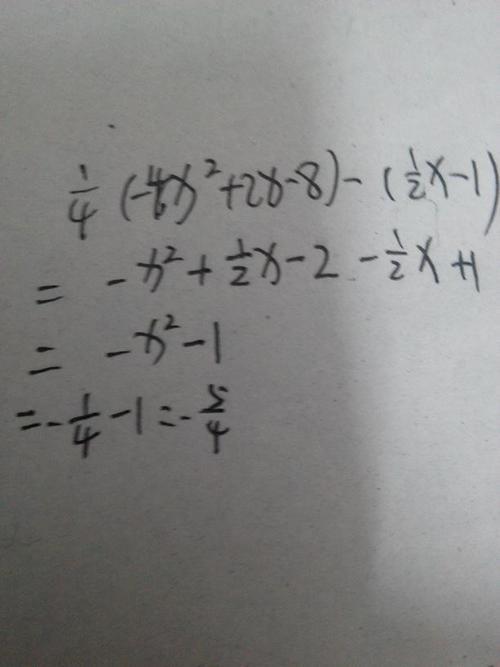 1/4 (-4x²+2x-8)-(1/2x-1)
= -x²+1/2x-2-1/2x+1
= -x²-1
=-1/4-1=-5/4